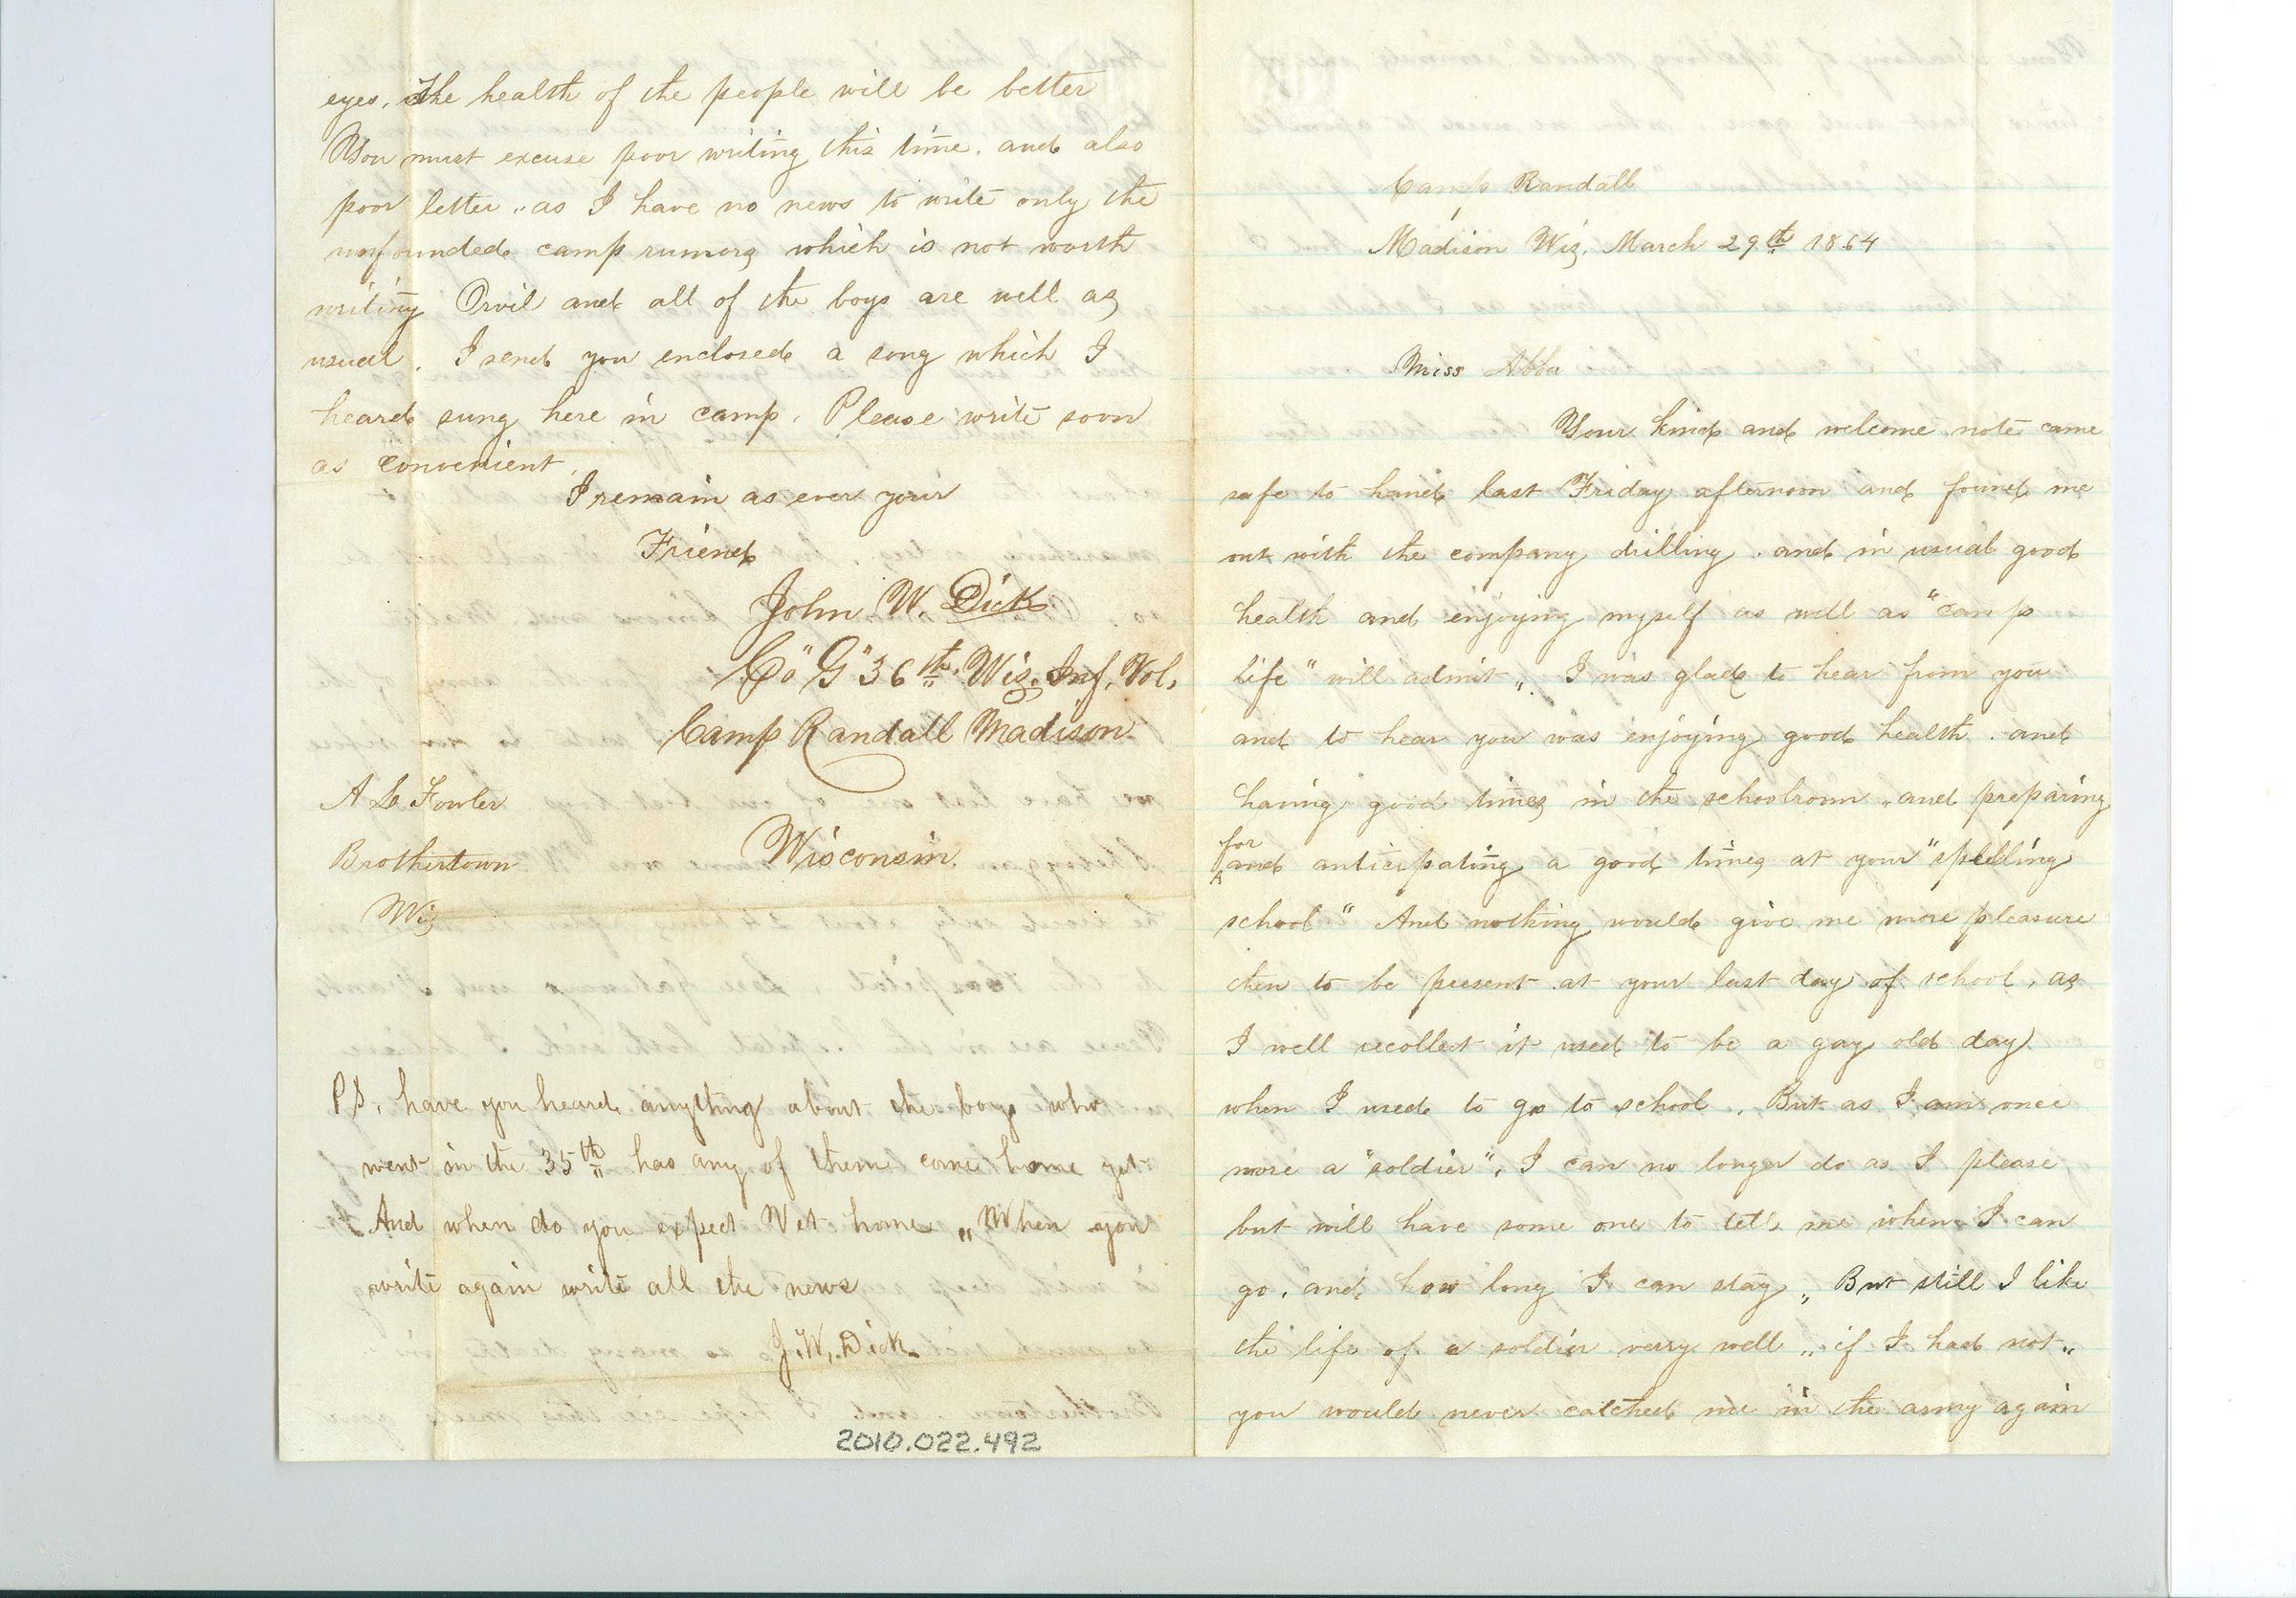 Camp Randall
Madison Wis. March 29th 1864
Miss Abba
Your kind and welcome note came
safe to hand last Friday afternoon and found me
out with the company drilling. and in usual good
health and enjoying myself as well as "camp
life" will admit„. I was glad to hear from you
and to hear you was enjoying good health. and
having good times in the schoolroom„ and preparing
for
and anticipating a good times at your "spelling
school" And nothing would give me more pleasure
then to be present at your last day of school, as
I well recollect it used to be a gay old day
when I used to go to school. But as I am once
more a "soldier", I can no longer do as I please
but will have some one to tell me when I can
go, and how long I can stay„ But still I like
the life of a soldier very well„ if I had not„
you would never catched me in the army again
eyes. The health of the people will be better
You must excuse poor writing this time. and also
poor letter„ as I have no news to write only the
unfounded camp rumors which is not worth
writing Orvil and all of the boys are well as
usual. I send you enclosed a song which I
heard sung here in camp. Please write soon
as convenient
I remain as ever your
Friend
John W. Dick
Co "G" 36th. Wis. Inf. Vol.
Camp Randall Madison
Wisconsin
A Fowler
Brothertown
Wis
P.S. have you heard anything about the boys who
went in the 35th has any of them come home yet
& And when do you expect Wet home„ When you
write again write all the news
J. W. Dick.
2010.022.492